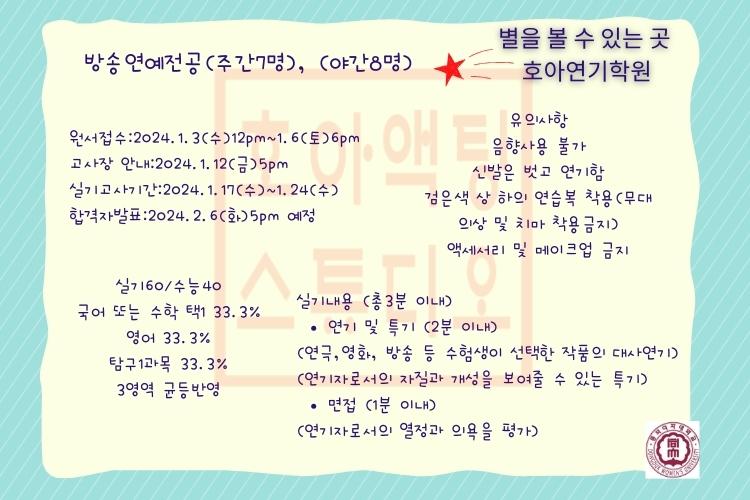 별을 볼 수 있는 곳
호아연기학원
방송연예전공(주간7명), (야간8명)
원서접수:2024.1.3(수)12pm~1.6(토)6pm
고사장 안내:2024.1.12(금)5pm
실기고사기간:2024.1.17(수)~1.24(수)
합격자발표:2024.2.6(화)5pm 예정
유의사항
음향사용 불가
신발은 벗고 연기함
검은색 상 하의 연습복 착용(무대
의상 및 치마 착용금지)
액세서리 및 메이크업 금지
실기60/수능40
국어 또는 수학 택1 33.3%
영어 33.3%
탐구1과목 33.3%
3영역 균등반영
실기내용 (총3분 이내)
• 연기 및 특기 (2분 이내)
(연극,영화, 방송 등 수험생이 선택한 작품의 대사연기)
(연기자로서의 자질과 개성을 보여줄 수 있는 특기)
• 면접 (1분 이내)
(연기자로서의 열정과 의욕을 평가)
호아액팅
스튜디오
동덕여자대학교
DONGDUK WOMEN'S UNIVERSITY